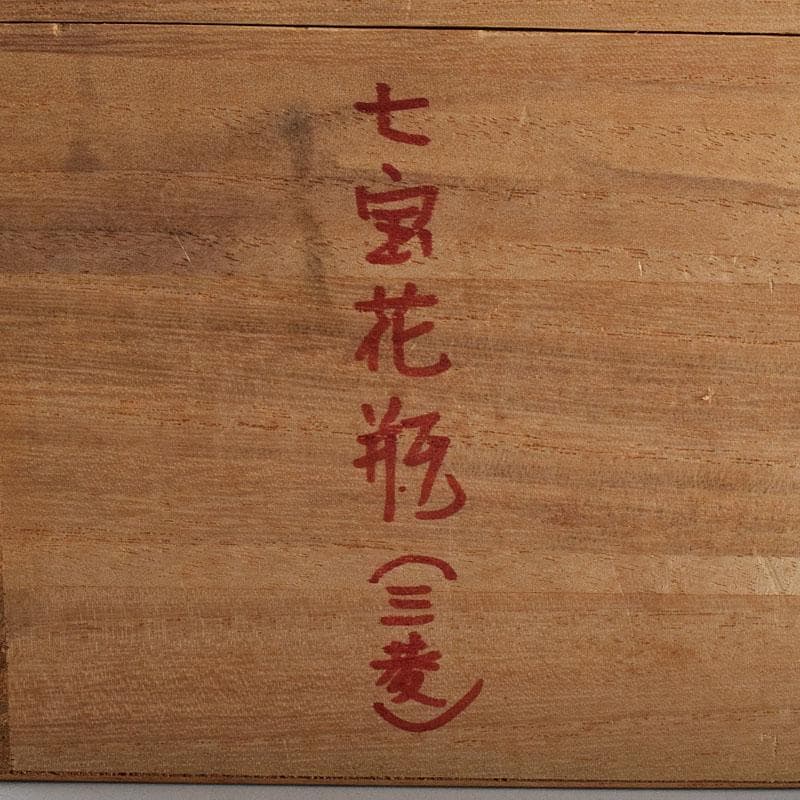 七宝花瓶（三菱）